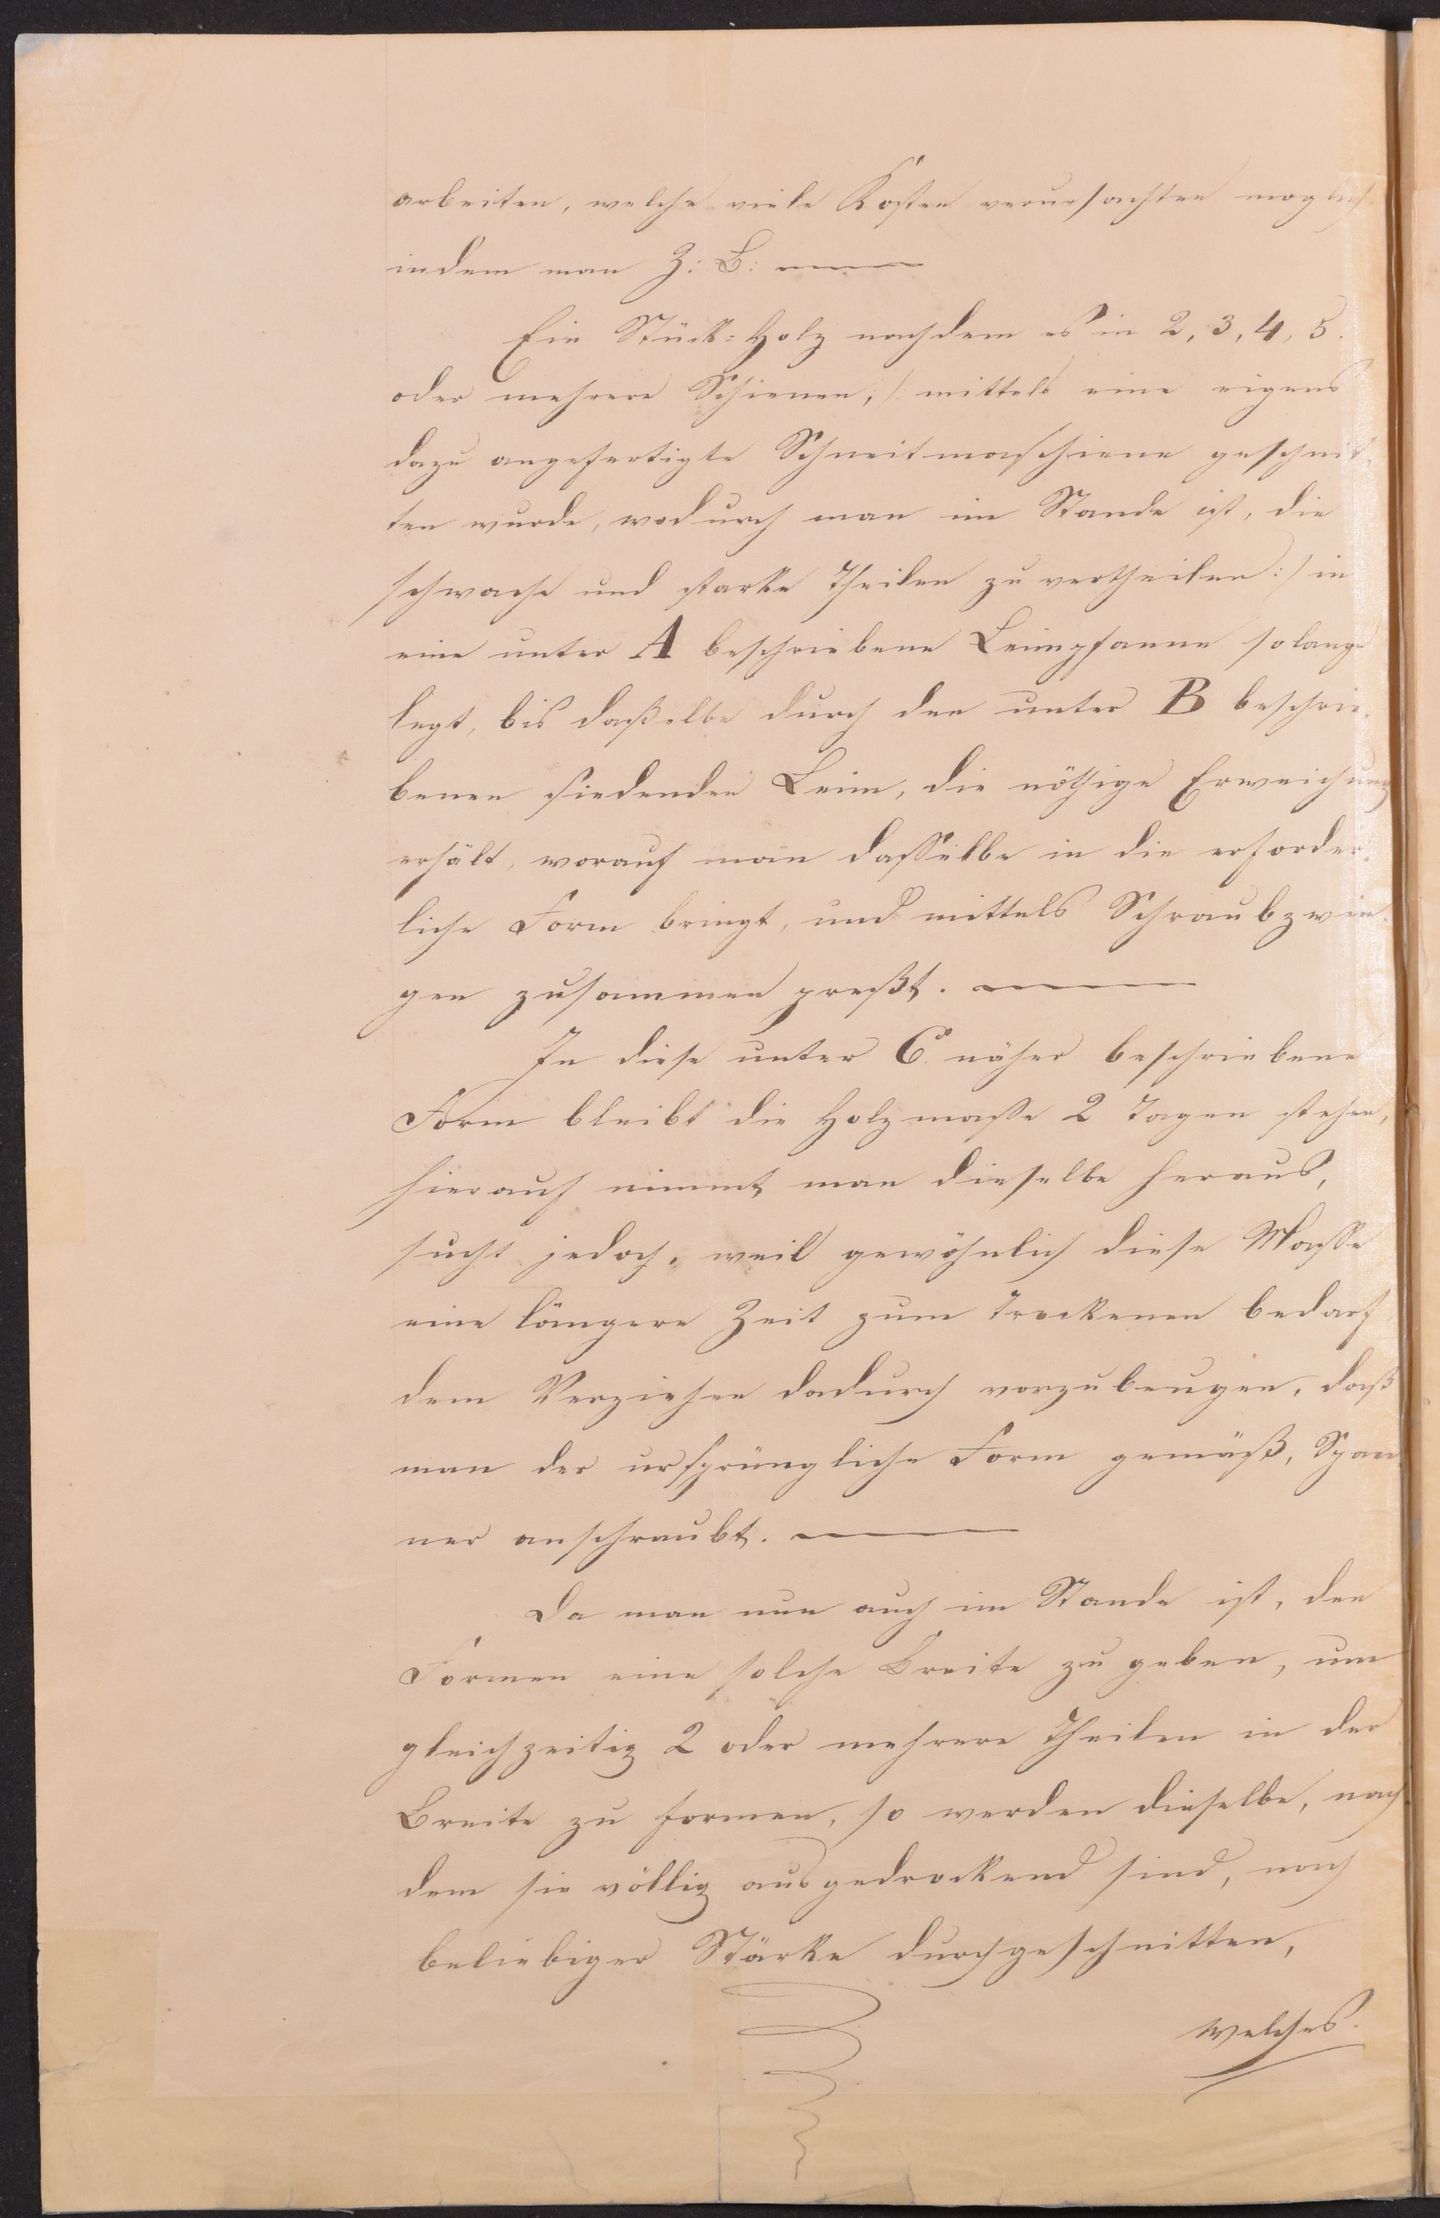 arbeiten, welche viele Kosten verursachten moglich
indem man Z: B:
Ein Stück=Holz nachdem es in 2, 3, 4, 5.
oder mehrere Schienen, /: mittels eine eigens
dazu angefertigte Schneitmaschiene geschnit-
ten wurde, wodurch man im Stande ist, die
schwache und starke Theilen zu vertheilen :/ in
eine unter A beschriebene Leimpfanne solange
legt, bis daßelbe durch den unter B beschrie-
benen siedenden Leim, die nöthige Erweichung
erhält, worauf man dasselbe in die erforder-
liche Form bringt, und mittels Schraubzwin-
gen zusammen preßt.
In diese unter C. näher beschriebene
Form bleibt die Holzmasse 2 Tagen stehen,
hierauf nimmt man dieselbe heraus,
sucht jedoch, weil gewöhnlich diese Masse
eine längere Zeit zum trockenen bedarf
dem Verziehen dadurch vorzubeugen, daß
man der ursprüngliche Form gemäß, Span-
ner anschraubt.
Da man nun auch im Stande ist, den
Formen eine solche Breite zu geben, um
gleichzeitig 2 oder mehrere Theilen in der
Breite zu formen, so werden dieselbe, nach
dem sie völlig ausgedrockend sind, nach
beliebiger Stärke durchgeschnitten,
welches.